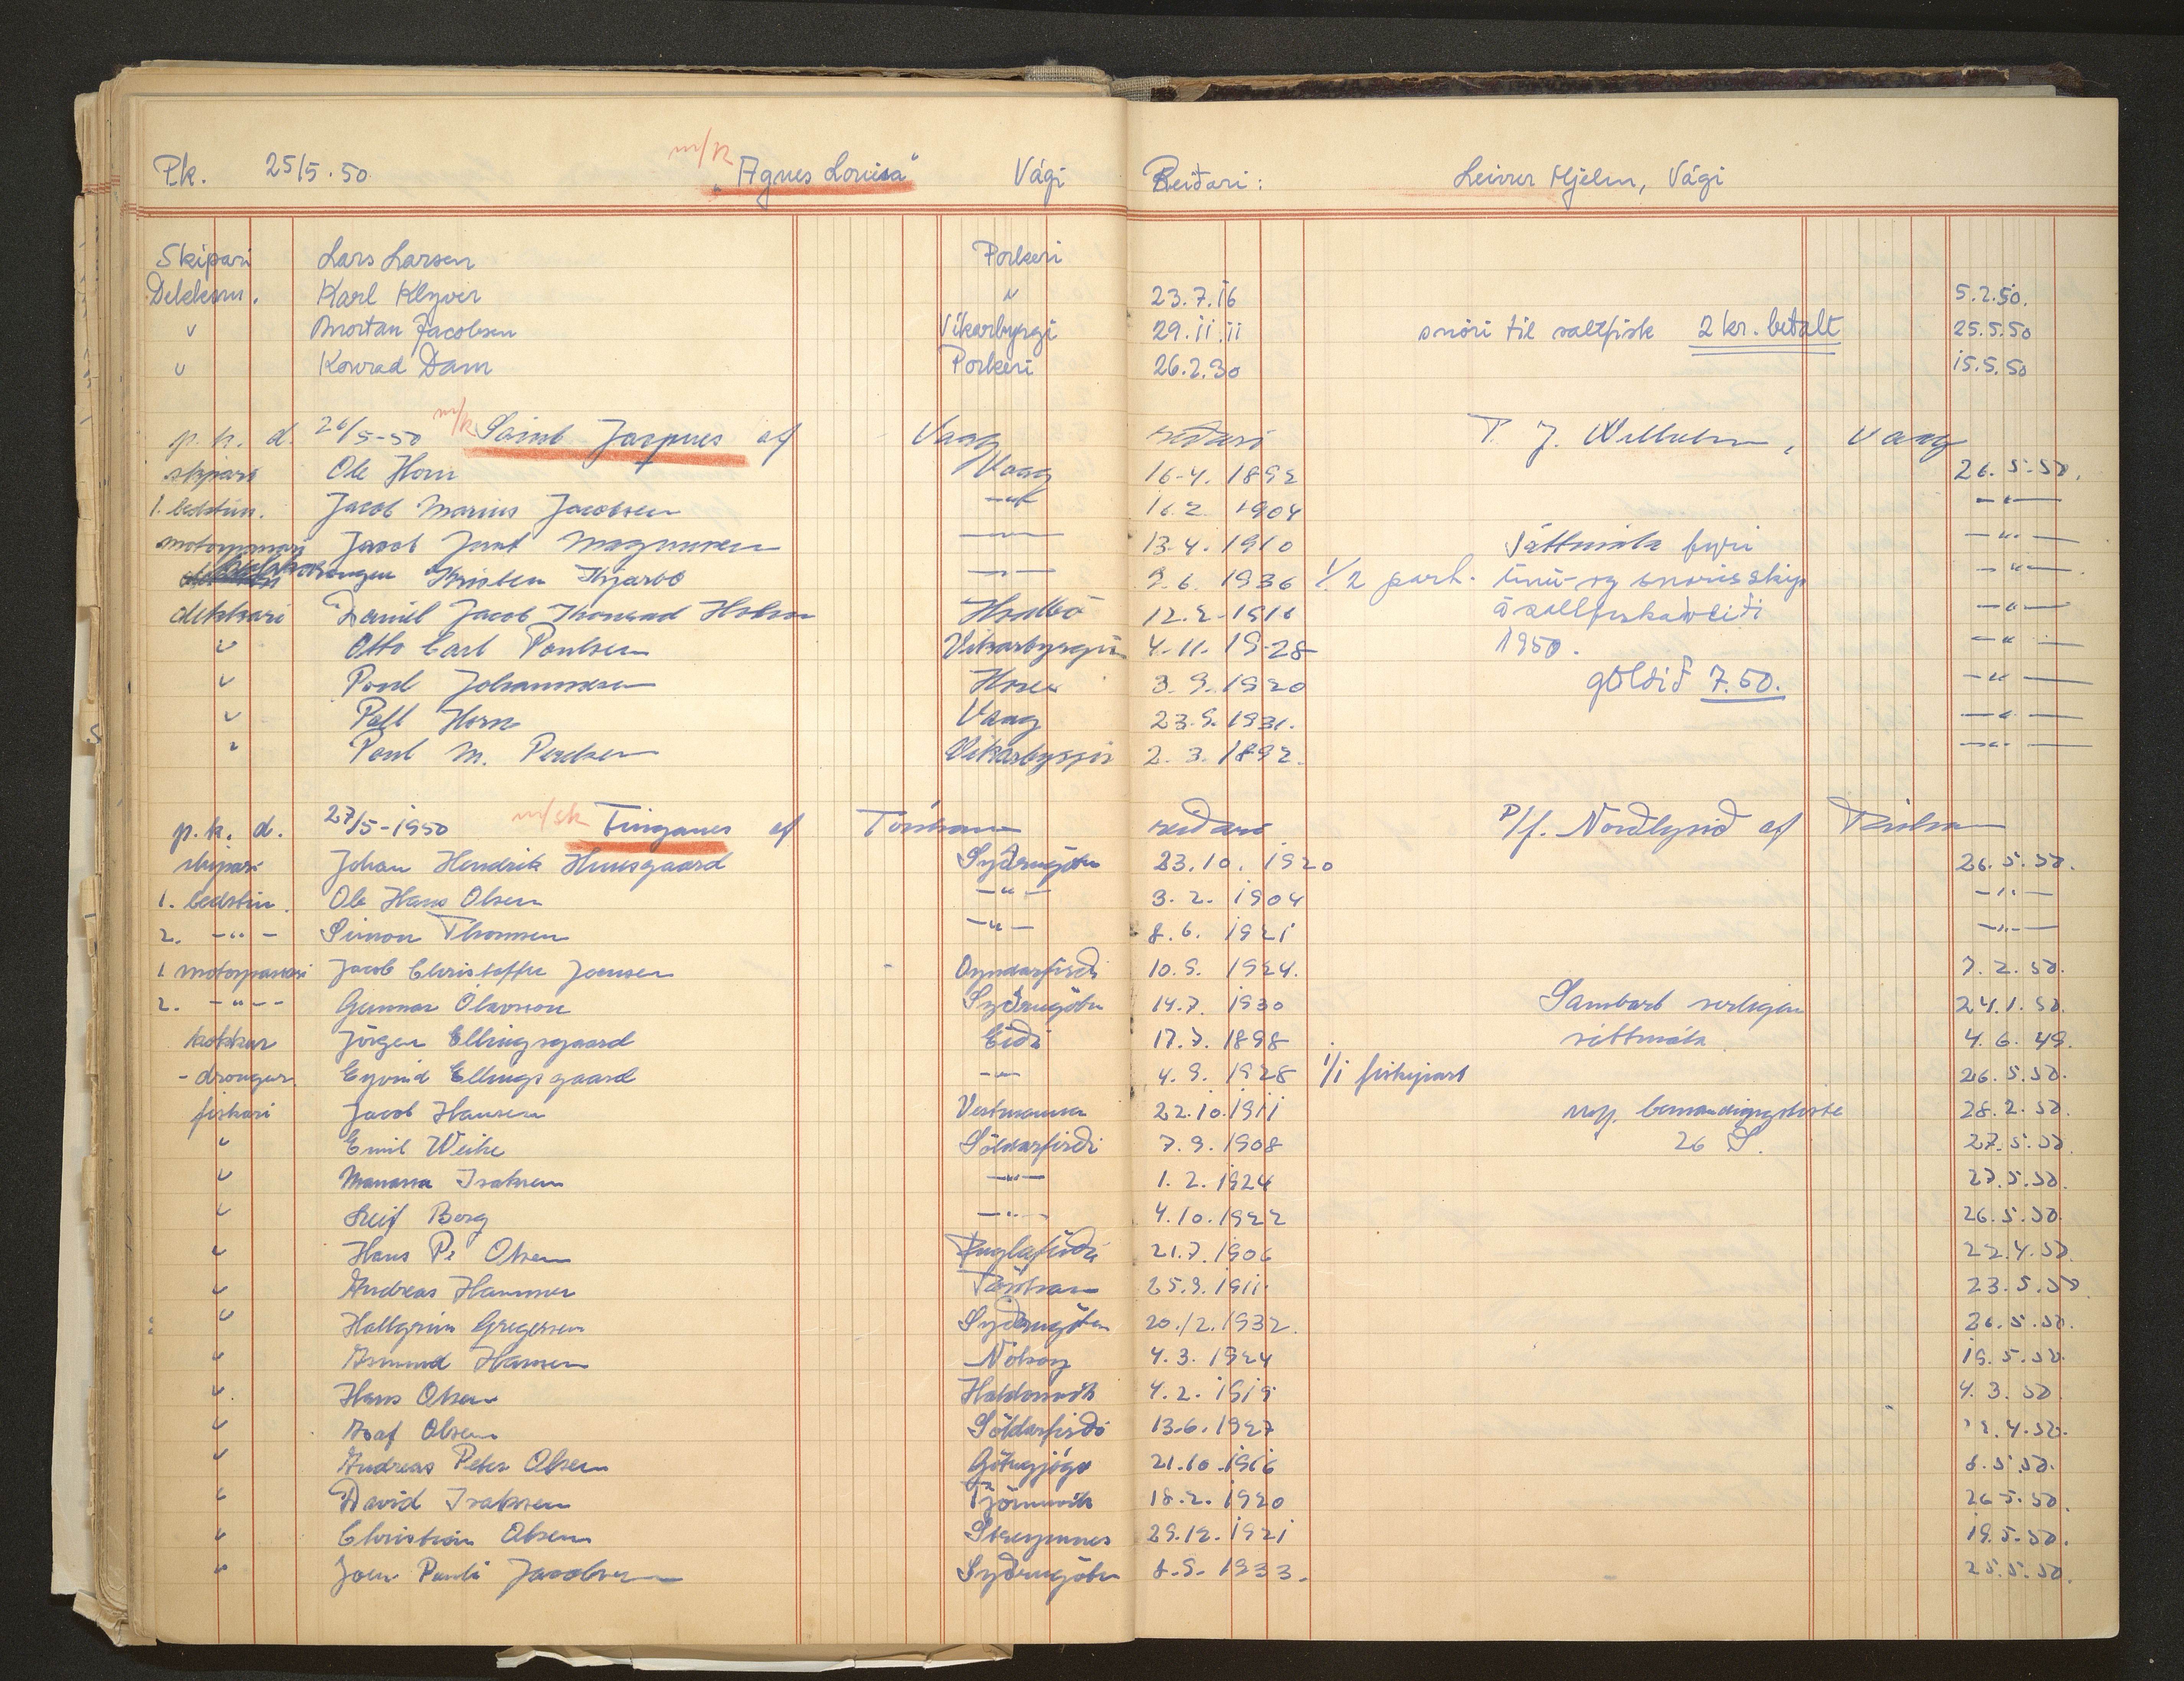 P.k. 25/5.50 m/k "Agnes Louisa" Vági Reiðari: Leivur Hjelm, Vági
Skipari Lars Larsen Porkeri
Dekksm. Karl Klyver " 23.7.16 5.2.50.
" Mortan Jacobsen Víkarbyrgi 29.11.11 snøri til saltfisk 2 kr. betalt 25.5.50
" Konrad Dam Porkeri 26.2.30 15.5.50
p. k. d. 26/5-50 m/k Saint Jacques af Vaag reiðari T. J. Wilhelm, Vaag
skipari Ole Horn Vaag 16-4. 1892 26.5.50.
1. bedstm. Jacob Marius Jacobsen —"— 16.2. 1904 —"—
motorpassari Jacob Magnussen —"— 13-4. 1910 Sáttmála fyri —"—
drongur Kjærbo —"— 9.6. 1936 1/2 part. línu- og snørisskip —"—
dekkari Daniel Jacob Thomead Holm Hvalbø 12.2-1916 á saltfiskaveiði —"—
" Otto Carl Poulsen Víkarbyrgi 4-11. 1928 1950. —"—
" Poul Johannesen Hove 3.9.1920 goldið 7.50. —"—
" Pall Horn Vaag 23.9.1931. —"—
" Poul M. Vikarbyrgi 2.3.1892. —"—
p. k. d. 27/5-1950 m/sk Tinganes af Tórshavn reiðari P/f. Norðlysið af Tórshavn
skipari Johan Hendrik Huusgaard Syðrugøtu 23.10. 1920 26.5.50.
1. bedstm. Ole Hans Olsen —"— 3.2. 1904 —"—
2. —"— Simon Thomsen —"— 8.6. 1921 —"—
1 motorpassari Jacob Christoffur Joensen Oyndarfirði 10.9. 1924. 7.2.50.
2. —"— Gunnar Olavson Syðrugøtu 14.7. 1930 Sambart serligari 24.1.50.
kokkur Jörgen Ellingsgaard Eiði 17.7. 1898 sáttmála 4.6.49.
- drongur Eyvind Ellingsgaard —"— 4.9. 1928 1/1 fiskipart 26.5.50.
fiskari Jacob Hansen Vestmanna 22.10.1911 bemandingsliste 28.2.50.
" Emil Weihe Söldarfirði 7.9.1908 26 S. 27.5.50
" Manassa Isaksen —"— 1.2.1924 27.5.50.
" Leif Borg —"— 4.10.1922 26.5.50.
" Hans Pr Olsen Fuglafirði 21.7.1906 22.4.50
" Andreas Hammer Tórshavn 25.9.1911. 23.5.50
" Hallgrim Gregersen Syðrugøtu 20.12.1932. 26.5.50.
" Asmund Hansen Nólsoy 4.3. 1924 19.5.50.
" Hans Olsen Haldarsvík 4.2. 1919 4.3.50.
" Asaf Olsen Söldarfirði 13.6.1927 .4.50.
" Andreas Peter Olsen Gøtugjógv 21.10.1916 6.5.50.
" David Isaksen Tjörnuvík 18.2. 1920 26.5.50.
" Christian Olsen Streymnes 29.12.1921 19.5.50.
" Joen Pauli Jacobsen Syðrugøtu 8.9. 1933. 25.5.50.